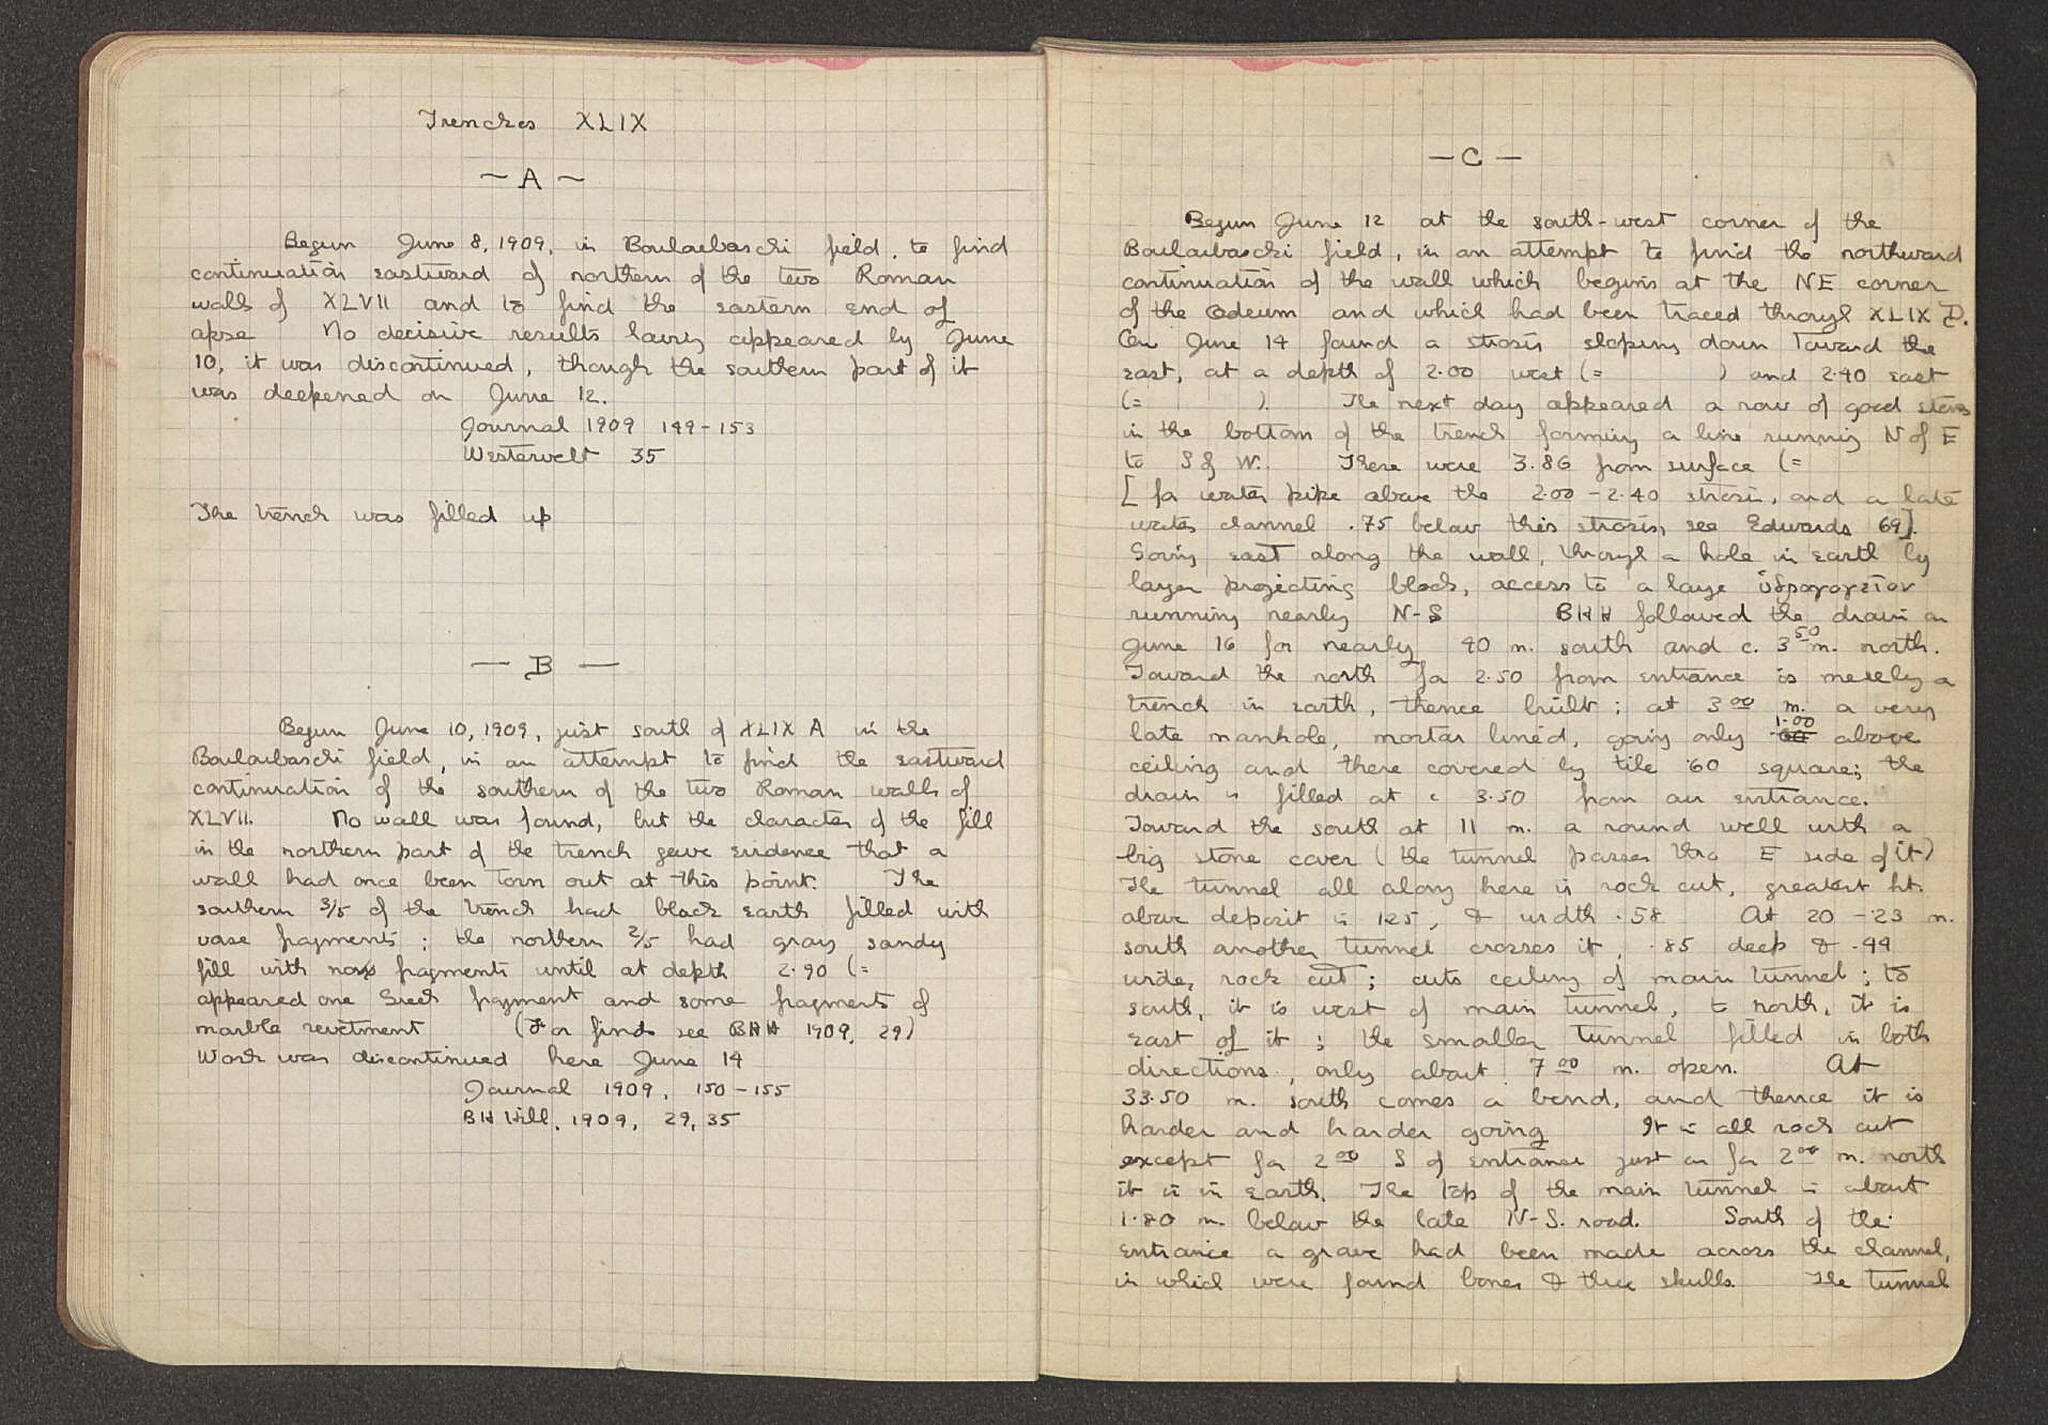 Trenches XLIX
— A —
Begun June 8, 1909, in Boulaubaschi field, to find
continuation eastward of northern of the two Roman
walls of XLVII and to find the eastern end of
apse No decisive results having appeared by June
10, it was discontinued, though the southern part of it
was deepened on June 12.
Journal 1909 149-153
Westervelt 35
The trench was filled up
— B —
Begun June 10, 1909, just south of XLIX A in the
Boulaubaschi field, in an attempt to find the eastward
continuation of the southern of the two Roman walls of
XLVII. No wall was found, but the character of the fill
in the northern part of the trench gave evidence that a
wall had once been torn out at this point. The
southern 3/5 of the trench had black earth filled with
vase fragments; the northern 2/5 had gray sandy
fill with no fragments until at depth 2.90 (=
appeared one Greek fragment and some fragments of
marble revetment (For finds see BHH 1909, 29)
Work was discontinued here June 14
Journal 1909, 150-155
BH Hill, 1909, 29, 35
— C —
Begun June 12 at the south-west corner of the
Boulaubaschi field, in an attempt to find the northward
continuation of the wall which begins at the NE corner
of the Odeum and which had been traced through XLIX D.
On June 14 found a strosis sloping down toward the
east, at a depth of 2.00 west (= ) and 2.40 east
(= ). The next day appeared a row of good stones
in the bottom of the trench forming a line running N of E
to S of W. These were 3.86 from surface (=
[for water pipe above the 2.00-2.40 strosis, and a late
water channel .75 below this strosis, see Edwards 69].
Going east along the wall, through a hole in earth by
large projecting block, access to a large ὑδραγωγεῖον
running nearly N-S BHH followed the drain on
June 16 for nearly 40 m. south and c. 3 50 m. north.
Toward the north for 2.50 from entrance is merely a
trench in earth, thence built; at 3 00 m. a very
late manhole, mortar lined, going only 1.00 above
ceiling and there covered by tile .60 square; the
drain is filled at c 3.50 from our entrance.
Toward the south at 11 m. a round well with a
big stone cover (the tunnel passes thro E side of it)
The tunnel all along here is rock cut, greatest ht.
above deposit is 1.25, & width .58 At 20-23 m.
south another tunnel crosses it, .85 deep & .44
wide, rock cut; cuts ceiling of main tunnel; to
south, it is west of main tunnel, to north, it is
east of it; the smaller tunnel filled in both
directions, only about 7 00 m. open. At
33.50 m. south comes a bend, and thence it is
harder and harder going It is all rock cut
except for 2 00 S of entrance just as for 2 00 m. north
it is in earth. The top of the main tunnel is about
1.80 m. below the late N-S. road. South of the
entrance a grave had been made across the channel,
in which were found bones & three skulls. The tunnel